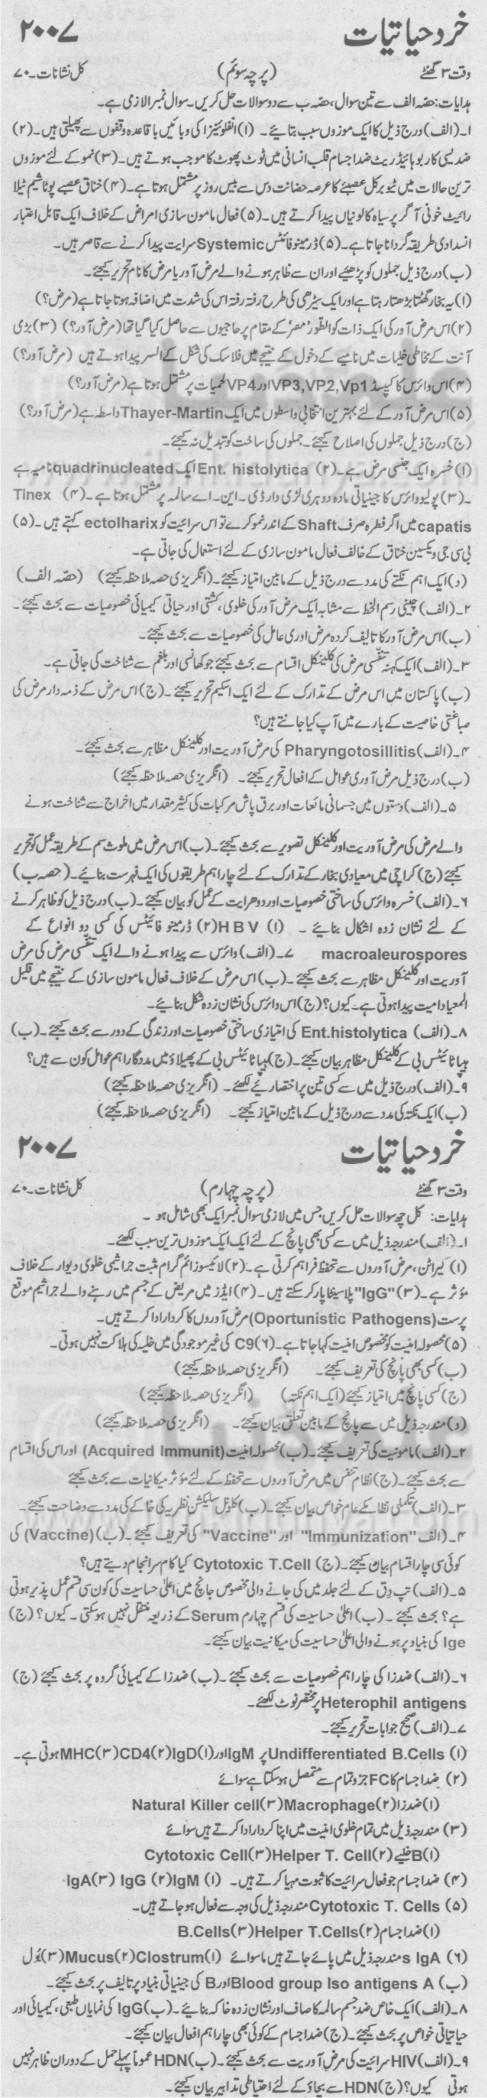 خرد حیاتیات ۲۰۰۷
وقت ۳ گھنٹے (پرچہ سوئم) کل نشانات۔۷۰
ہدایات: حصہ الف سے تین سوال، حصہ ب سے دو سوالات حل کریں۔ سوال نمبر ۱ لازمی ہے۔
۱۔(الف) درج ذیل کا ایک موزوں سبب بتایئے۔ (۱) انفلوئنزا کی وبائیں باقاعدہ وقفوں سے پھیلتی ہیں۔(۲)
ضد لیسی کاربوہائیڈریٹ ضد اجسام قلب انسانی میں ٹوٹ پھوٹ کا موجب ہوتے ہیں۔ (۳) نمو کے لئے موزوں
ترین حالات میں ٹیوبرکل عصبئے کا عرصہ حضانت دس سے بیس روز پر مشتمل ہوتا ہے۔ (۴) خناق عصبے پوٹاشیم ٹیلا
رائیٹ خونی آگر پر سیاہ کالونیاں پیدا کرتے ہیں۔ (۵) فعال مامون سازی امراض کے خلاف ایک قابل اعتبار
انسدادی طریقہ گردانا جاتا ہے۔ (۵) ڈرمیٹو فائٹس Systemic سرایت پیدا کرنے سے قاصر ہیں۔
(ب) درج ذیل جملوں کو پڑھیئے اور ان سے ظاہر ہونے والے مرض آور یا مرض کا نام تحریر کیجئے۔
(۱) یہ بخار گھٹتا بڑھتا رہتا ہے اور ایک سیڑھی کی طرح رفتہ رفتہ اس کی شدت میں اضافہ ہوتا جاتا ہے (مرض؟)
(۲) اس مرض آور کی ایک ذات کو الطور مصر کے مقام پر حاجیوں سے حاصل کیا گیا تھا (مرض آور؟) (۳) بڑی
آنت کے مخاطی خلیات میں نامیے کے دخول کے نتیجے میں فلاسک کی شکل کے السر پیدا ہوتے ہیں (مرض آور؟)
(۴) اس وائرس کا کیپسڈ VP3,VP2,Vp1 اور VP4 لحمیات پر مشتمل ہوتا ہے (مرض آور؟)
(۵) اس مرض آور کے لئے بہترین انتخابی واسطوں میں ایک Thayer-Martin واسطہ ہے (مرض آور؟)
(ج) درج ذیل جملوں کی اصلاح کیجئے۔ جملوں کی ساخت کو تبدیل نہ کیجئے۔
(۱) خسرہ ایک جنسی مرض ہے۔ (۲) Ent. histolytica ایک quadrinucleated نامیہ ہے
۔(۳) پولیو وائرس کا جینیاتی مادہ دوہری لڑی دار ڈی۔این۔اے سالمہ پر مشتمل ہوتا ہے۔ (۴) Tinex
capatis میں اگر فطرہ صرف Shaft کے اندر نمو کرے تو اس سرایت کو ectolharix کہتے ہیں۔ (۵)
بی سی جی ویکسین خناق کے خالف فعال مامون سازی کے لئے استعمال کی جاتی ہے۔
(د) ایک اہم نکتے کی مدد سے درج ذیل کے مابین امتیاز کیجئے۔ (انگریزی حصہ ملاحظہ کیجئے) (حصہ الف)
۲۔(الف) چینی رسم الخط سے مشابہ ایک مرض آور کی خلوی، کشتی اور حیاتی کیمیائی خصوصیات سے بحث کیجئے۔
(ب) اس مرض آور کا تالیف کردہ مرض آوری عامل کی خصوصیات سے بحث کیجئے۔
۳۔(الف) ایک کہنہ تنفسی مرض کی کلینکل اقسام سے بحث کیجئے جو کھانسی اور بلغم سے شناخت کی جاتی ہے۔
(ب) پاکستان میں اس مرض کے تدارک کے لئے ایک اسکیم تحریر کیجئے۔ (ج) اس مرض کے ذمہ دار مرض کی
صباغتی خاصیت کے بارے میں آپ کیا جانتے ہیں؟
۴۔(الف) Pharyngotosillitis کی مرض آوریت اور کلینکل مظاہر سے بحث کیجئے۔
(ب) درج ذیل مرض آوری عوامل کے افعال تحریر کیجئے۔ (انگریزی حصہ ملاحظہ کیجئے)
۵۔(الف) دستوں میں جسمانی مائعات اور برق پاش مرکبات کی کثیر مقدار میں اخراج سے شناخت ہونے
والے مرض کی مرض آوریت اور کلینکل تصویر سے بحث کیجئے۔ (ب) اس مرض میں ملوث سم کے طریقہ عمل کو تحریر
کیجئے (ج) کراچی میں معیادی بخار کے تدارک کے لئے چار اہم طریقوں کی ایک فہرست بنائیے۔ (حصہ ب)
۶۔(الف) خسرہ وائرس کی ساختی خصوصیات اور دوہرایت کے عمل کو بیان کیجئے۔ (ب) درج ذیل کو ظاہر کرنے
کے لئے نشان زدہ اشکال بنائیے ۔ (۱) HBV (۲) ڈرمیٹو فائٹس کی کسی دو انواع کے
macroaleurospores ۷۔(الف) وائرس سے پیدا ہونے والے ایک تنفسی مرض کی مرض
آوریت اور کلینکل مظاہر سے بحث کیجئے۔ (ب) اس مرض کے خلاف فعال مامون سازی کے نتیجے میں قلیل
المعیاد امیت پیدا ہوتی ہے۔ کیوں؟ (ج) اس وائرس کی نشان زدہ شکل بنائیے۔
۸۔(الف) Ent.histolytica کی امتیازی ساختی خصوصیات اور زندگی کے دور سے بحث کیجئے۔ (ب)
ہیپاٹائیٹس بی کے کلینکل مظاہر بیان کیجئے۔ (ج) ہیپاٹائیٹس بی کے پھیلاؤ میں مددگار اہم عوامل کون سے ہیں؟
۹۔(الف) درج ذیل میں سے کسی تین پر اختصاریئے لکھئے۔ (انگریزی حصہ ملاحظہ کیجئے)
(ب) ایک نکتہ کی مدد سے درج ذیل کے مابین امتیاز کیجئے۔ (انگریزی حصہ ملاحظہ کیجئے)
خرد حیاتیات ۲۰۰۷
وقت ۳ گھنٹے (پرچہ چہارم) کل نشانات۔۷۰
ہدایات: کل چھ سوالات حل کریں جس میں لازمی سوال نمبر ایک بھی شامل ہو۔
۱۔(الف) مندرجہ ذیل میں سے کسی بھی پانچ کے لئے ایک ایک موزوں ترین سبب لکھئے۔
(۱) کیراٹن، مرض آوروں سے تحفظ فراہم کرتی ہے۔ (۲) لائیسوزائم گرام مثبت جراثیمی خلوی دیوار کے خلاف
مؤثر ہے۔ (۳) "IgG" پلاسینٹا پار کر سکتے ہیں۔ (۴) ایڈز میں مریض کے جسم میں رہنے والے جراثیم موقع
پرست (Oportunistic Pathogens) مرض آوروں کا کردار ادا کرتے ہیں۔
(۵) محصولہ امنیت کو مخصوص امنیت کہا جاتا ہے۔ (۶) C9 کی غیر موجودگی میں خلیہ کی ہلاکت نہیں ہوتی۔
(ب) کسی بھی پانچ کی تعریف کیجئے۔ (انگریزی حصہ ملاحظہ کیجئے)
(ج) کسی پانچ میں امتیاز کیجئے (ایک اہم نکتہ) (انگریزی حصہ ملاحظہ کیجئے)
(د) مندرجہ ذیل میں سے پانچ کے مابین تعلق بیان کیجئے۔ (انگریزی حصہ ملاحظہ کیجئے)
۲۔(الف) مامونیت کی تعریف کیجئے۔ (ب) محصولہ امنیت (Acquired Immunit) اور اس کی اقسام
سے بحث کیجئے۔ (ج) نظام تنفس میں مرض آوروں سے تحفظ کے لئے مؤثر میکانیات سے بحث کیجئے
۳۔(الف) تکمیلی نظام کے عام خواص بیان کیجئے۔ (ب) کلونل سلیکشن نظریہ کی خاکے کی مدد سے وضاحت کیجئے۔
۴۔(الف) "Immunization" اور "Vaccine" کی تعریف کیجئے۔ (ب) (Vaccine) کی
کوئی سی چار اقسام بیان کیجئے۔ (ج) Cytotoxic T.Cell کیا کام سرانجام دیتے ہیں؟
۵۔(الف) تپ دق کے لئے جلد میں کی جانے والی مخصوص جانچ میں اعلیٰ حساسیت کی کون سی قسم عمل پذیر ہوتی
ہے؟ بحث کیجئے۔ (ب) اعلیٰ حساسیت کی قسم چہارم Serum کے ذریعہ منتقل نہیں ہو سکتی۔ کیوں؟ (ج)
Ige کی بنیاد پر ہونے والی اعلیٰ حساسیت کی میکانیت بیان کیجئے۔
۶۔(الف) ضد زا کی چار اہم خصوصیات سے بحث کیجئے۔ (ب) ضد زا کے کیمیائی گروہ پر بحث کیجئے (ج)
Heterophil antigens پر مختصر نوٹ لکھئے۔
۷۔(الف) صحیح جوابات تحریر کیجئے۔
(۱) Undifferentiated B.Cells پر IgM اور IgD(۱) CD4(۲) MHC(۳) ہوتی ہے۔
(۲) ضد اجسام کا FC جزو تمام سے متصل ہو سکتا ہے سوائے
(۱) ضد زا (۲) Macrophage (۳) Natural Killer cell
(۳) مندرجہ ذیل میں تمام خلوی امنیت میں اپنا کردار ادا کرتے ہیں سوائے
(۱) B خلیے (۲) Helper T. Cell (۳) Cytotoxic Cell
(۴) ضد اجسام جو فعال سرائیت کا ثبوت مہیا کرتے ہیں۔ (۱) IgM (۲) IgG (۳) IgA
(۵) Cytotoxic T. Cells مندرجہ ذیل میں کی وجہ سے فعال ہو جاتے ہیں۔
(۱) ضد اجسام (۲) Helper T.Cells (۳) B.Cells
(۶) s IgA مندرجہ ذیل میں پائے جاتے ہیں ماسوائے (۱) Clostrum (۲) Mucus (۳) بَول
(ب) Blood group Iso antigens A اور B کی جینیاتی بنیاد پر تالیف پر بحث کیجئے۔
۸۔(الف) ایک خاص ضد جسم سالمہ کا صاف اور نشان زدہ خاکہ بنائیے۔ (ب) IgG کی نمایاں طبعی، کیمیائی اور
حیاتیاتی خواص پر بحث کیجئے۔ (ج) ضد اجسام کے کوئی بھی چار اہم افعال بیان کیجئے۔
۹۔(الف) HIV سرائیت کی مرض آوریت سے بحث کیجئے۔ (ب) HDN عموماً پہلے حمل کے دوران ظاہر نہیں
ہوتی کیوں؟ (ج) HDN سے بچاؤ کے لئے احتیاطی تدابیر بیان کیجئے۔